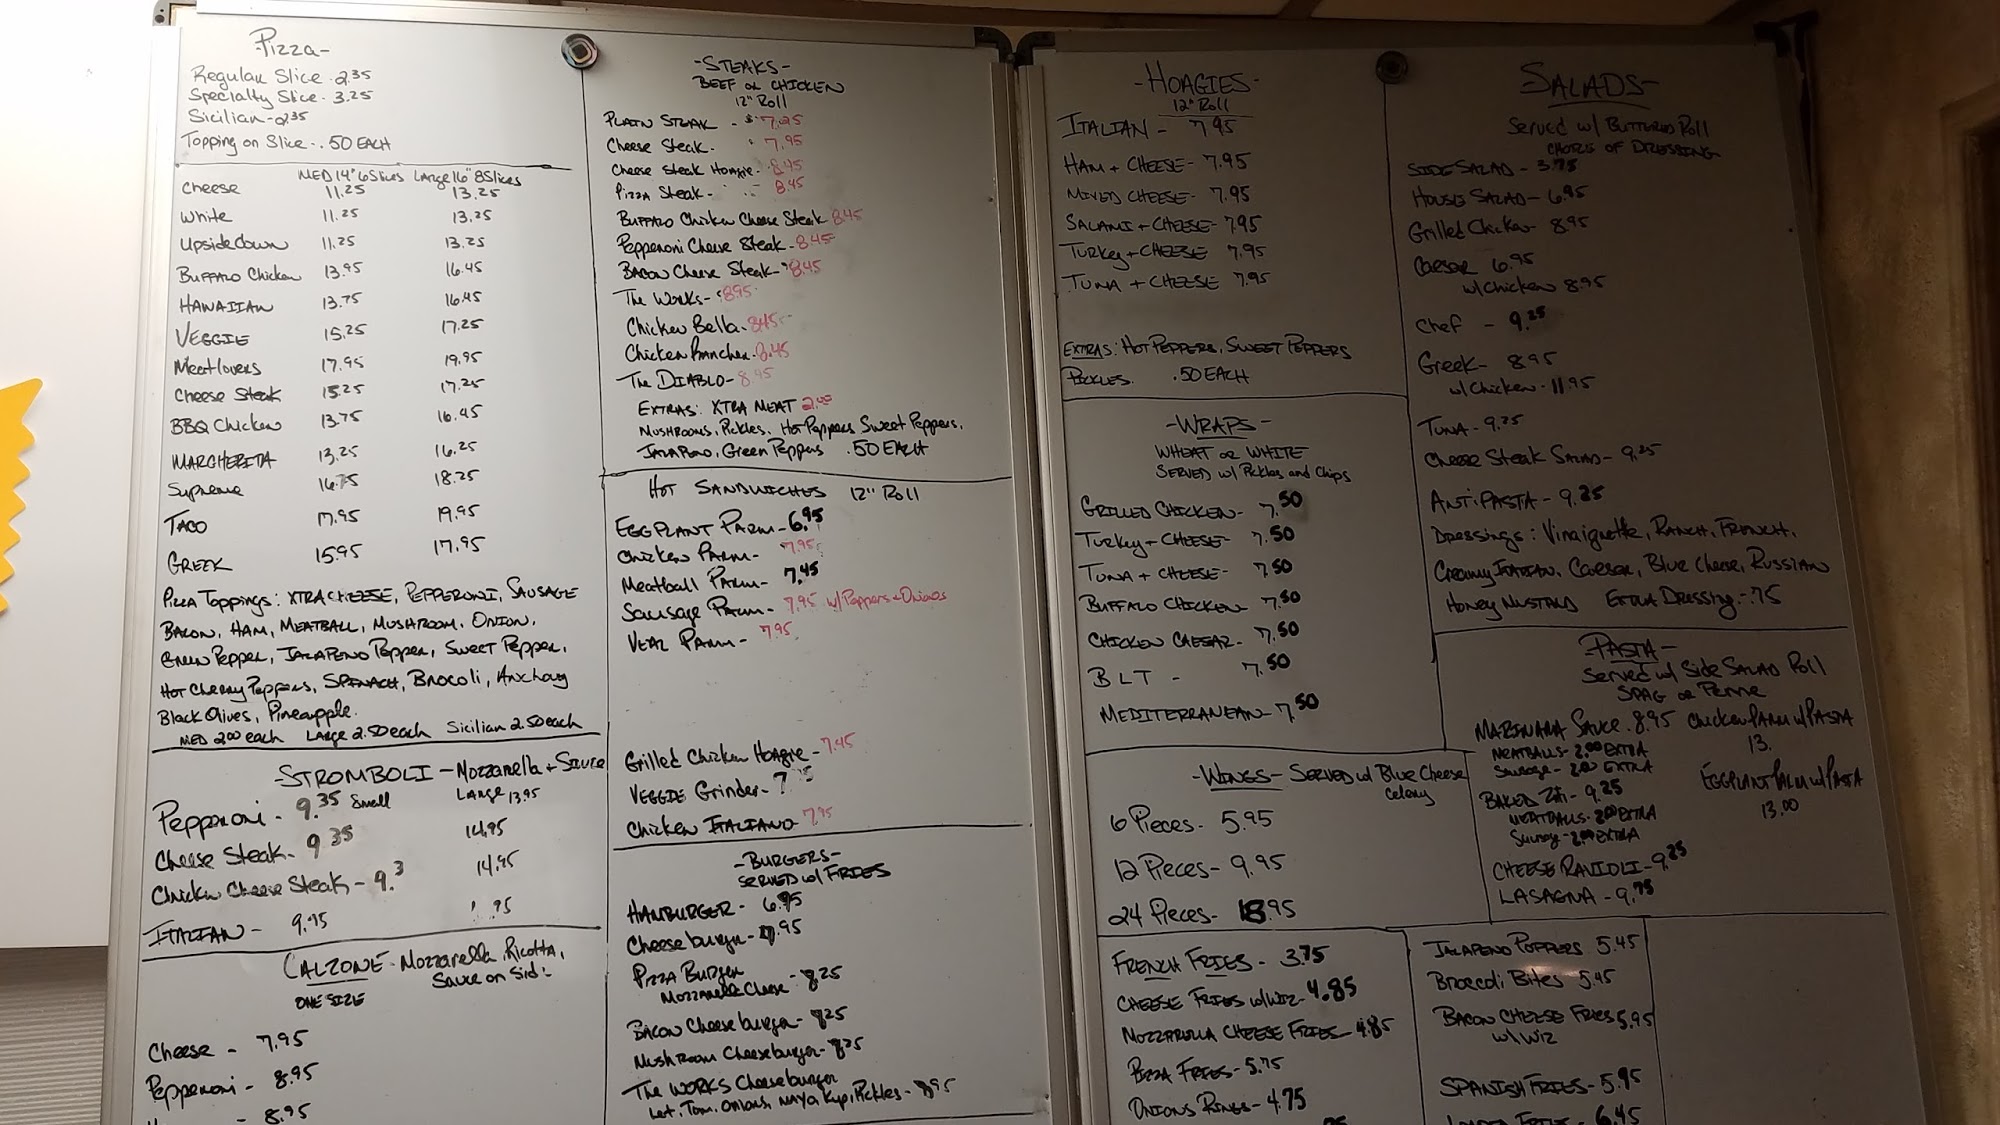 -Pizza-
Regular Slice - 2.35
Specialty Slice - 3.25
Sicilian - 2.35
Topping on Slice - .50 EACH
MED 14" 6 Slices Large 16" 8 Slices
Cheese 11.25 13.25
White 11.25 13.25
Upsidedown 11.25 13.25
Buffalo Chicken 13.95 16.45
HAWAIIAN 13.75 16.45
VEGGIE 15.25 17.25
Meatlovers 17.95 19.95
Cheese Steak 15.25 17.25
BBQ Chicken 13.75 16.45
MARGHERITA 13.25 16.25
Supreme 16.75 18.25
TACO 17.95 19.95
GREEK 15.95 17.95
Pizza Toppings: XTRA CHEESE, PEPPERONI, SAUSAGE
BACON, HAM, MEATBALL, MUSHROOM, ONION,
Green Pepper, JALAPENO Pepper, Sweet Pepper,
Hot Cherry Peppers, SPINACH, Brocoli, Anchovy
Black Olives, Pineapple.
MED 2.00 each LARGE 2.50 each Sicilian 2.50 each
-STROMBOLI - Mozzarella + Sauce
Pepperoni - 9.35 Small LARGE 13.95
Cheese Steak - 9.35 14.95
Chicken Cheese Steak - 9.3 14.95
ITALIAN - 9.95 .95
CALZONE - Mozzarella, Ricotta,
Sauce on Side
ONE SIZE
Cheese - 7.95
Pepperoni - 8.95
8.95
-STEAKS-
BEEF or CHICKEN
12" Roll
PLAIN STEAK - $7.25
Cheese Steak - 7.95
Cheese Steak Hoagie - 8.45
Pizza Steak - 8.45
Buffalo Chicken Cheese Steak 8.45
Pepperoni Cheese Steak - 8.45
BACON Cheese Steak - 8.45
The Works - 8.95
Chicken Bella - 8.45
Chicken Rancher - 8.45
The DIABLO - 8.45
EXTRAS: XTRA MEAT 2.00
MUSHROOMS, Pickles, Hot Peppers Sweet Peppers,
JALAPENO, Green Peppers .50 EACH
HOT SANDWICHES 12" Roll
EGGPLANT PARM - 6.95
Chicken PARM - 7.95
Meatball PARM - 7.45
Sausage PARM - 7.95 w/Peppers + Onions
VEAL PARM - 7.95
Grilled Chicken Hoagie - 7.45
VEGGIE Grinder - 7
Chicken ITALIANO 7.95
-BURGERS-
SERVED w/ FRIES
HAMBURGER - 6.95
Cheeseburger - 7.95
Pizza Burger
Mozzarella Cheese - 8.25
BACON Cheeseburger - 8.25
MUSHROOM Cheeseburger - 8.25
The WORKS Cheeseburger
Let, Tom, Onions, MAYO, Kup, Pickles - 8.95
-HOAGIES-
12" Roll
ITALIAN - 7.95
HAM + CHEESE - 7.95
MIXED CHEESE - 7.95
SALAMI + CHEESE - 7.95
Turkey + CHEESE 7.95
TUNA + CHEESE 7.95
EXTRAS: HOT PEPPERS, SWEET PEPPERS
PICKLES. .50 EACH
-WRAPS-
WHEAT or WHITE
SERVED w/ Pickles and Chips
GRILLED CHICKEN - 7.50
Turkey + CHEESE - 7.50
TUNA + CHEESE - 7.50
BUFFALO CHICKEN 7.50
CHICKEN CAESAR - 7.50
BLT - 7.50
MEDITERRANEAN - 7.50
-WINGS- SERVED w/ Blue Cheese
Celery
6 Pieces - 5.95
12 Pieces - 9.95
24 Pieces - 18.95
FRENCH FRIES - 3.75
CHEESE FRIES w/WIZ - 4.85
MOZZARELLA CHEESE FRIES - 4.85
PIZZA FRIES - 5.75
ONIONS RINGS - 4.75
SALADS-
Served w/ BUTTERED Roll
CHOICE OF DRESSING
SIDE SALAD - 3.75
HOUSE SALAD - 6.95
Grilled Chicken - 8.95
CAESAR 6.95
w/Chicken 8.95
Chef - 9.25
Greek - 8.95
w/Chicken - 11.95
TUNA - 9.25
Cheese Steak SALAD - 9.25
ANTIPASTA - 9.25
Dressings: Vinaigrette, RANCH, FRENCH,
Creamy ITALIAN, Caesar, Blue Cheese, RUSSIAN
Honey MUSTARD EXTRA Dressing - .75
PASTA-
Served w/ Side SALAD Roll
SPAG or Penne
MARINARA SAUCE 8.95
MEATBALLS - 2.00 EXTRA
Sausage - 2.00 EXTRA
BAKED Ziti - 9.25
MEATBALLS - 2.00 EXTRA
Sausage - 2.00 EXTRA
CHEESE RAVIOLI - 9.25
LASAGNA - 9.75
Chicken PARM w/PASTA
13.
EGGPLANT PARM w/PASTA
13.00
JALAPENO POPPERS 5.45
Broccoli Bites - 5.45
BACON CHEESE FRIES 5.95
w/ WIZ
SPANISH FRIES - 5.95
LOADED FRIES - 6.45